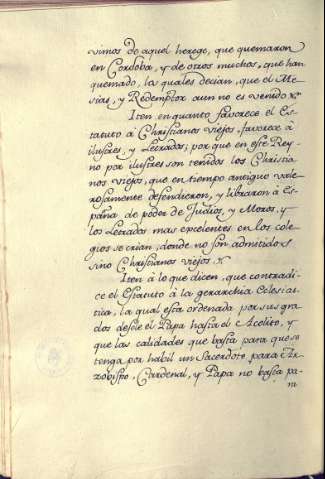 vimos de aquel herege, que quemaron
en Cordoba, y de otros muchos, que han
quemado, los quales decian, que el Me-
sias, y Redemptor aun no es venido &c.
Iten en quanto favorece el Es-
tatuto à Christianos viejos, favorece à
ilustres, y Letrados; por que en este Rey-
no por ilustres son tenidos los Christia-
nos viejos, que en tiempo antiguo vale-
rosamente defendieron, y libraron à Es-
paña de poder de Judios, y Moros, y
los Letrados mas excelentes en los cole-
gios se crian, donde no son admitidos
sino Christianos viejos &c.
Iten à lo que dicen, que contradi-
ce el Estatuto à la gerarchia Eclesias-
tica, la qual esta ordenada por sus gra-
dos desde el Papa hasta el Acolito, y
que las calidades que basta para que se
tenga por habil un Sacerdote para Ar-
zobispo, Cardenal, y Papa no basta pa-
ra